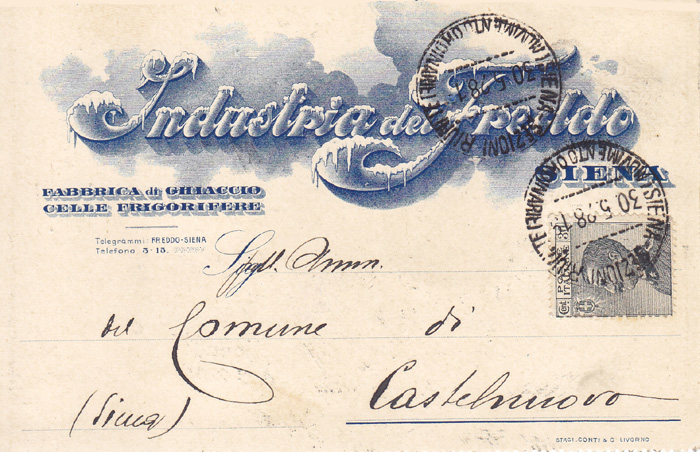 Industria del Freddo
SIENA
FABBRICA di GHIACCIO
CELLE FRIGORIFERE
Telegrammi FREDDO-SIENA
Telefono 3-15
Spett. Amm.
del Comune di
Castelnuovo
(Siena)
SIENA
30.5.28
SIENA
30.5.28
STAB. CONTI & C. LIVORNO